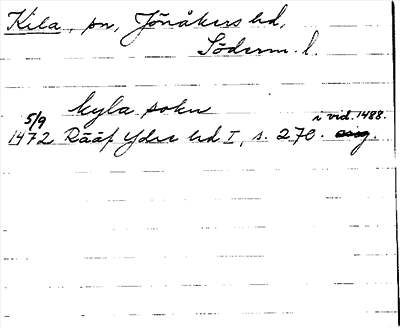 Kila, sn, Jönåkers hd,
Söderm. l.
kyla sokn
5/9 i vid. 1488.
1472 Rääf Ydre hd I, s. 270. orig.